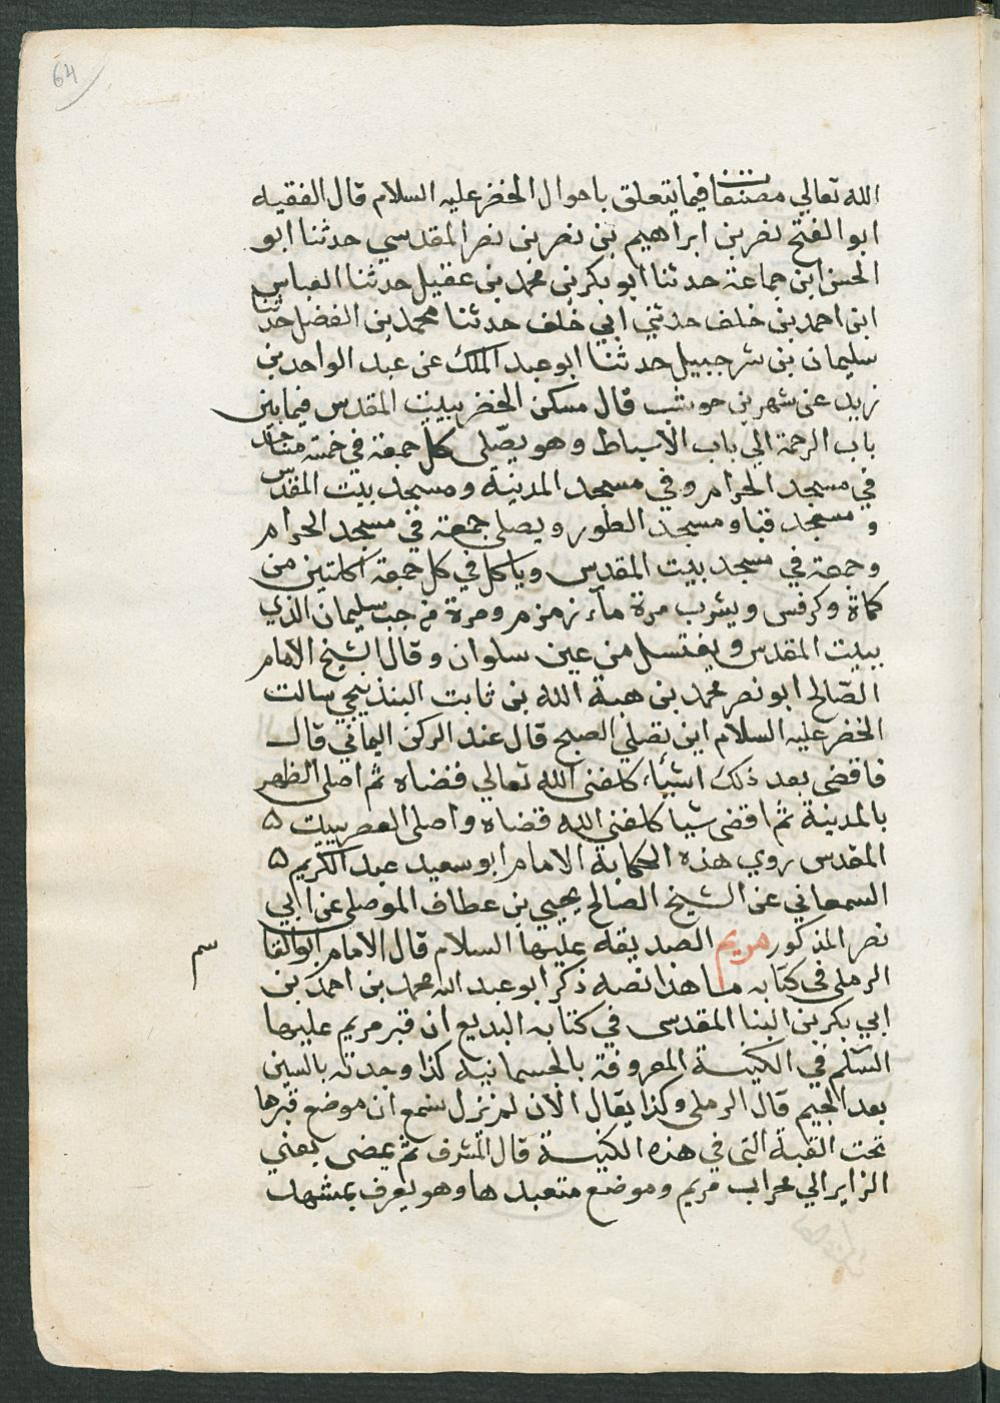 64
الله تعالي مصنفا فيما يتعلق باحوال الخضر عليه السلام قال الفقيه
ابو الفتح نصر بن ابراهيم بن نصر بن نصر المقدسي حدثنا ابو
الحسن ابن جماعة حدثنا ابو بكر بن محمد بن عقيل حدثنا العباس
ابن احمد بن خلف حدثني ابي خلف حدثنا محمد بن الفضل حدثنا
سليمان بن شرحبيل حدثنا ابو عبد الملك عن عبد الواحد بن
زيد عن شهر بن حوشب قال مسكن الخضر ببيت المقدس فيما بين
باب الرحمة الي باب الاسباط وهو يصّلى كل جمعة في خمسة مساجد
في مسجد الحرام وفي مسجد المدينة ومسجد بيت المقدس
و مسجد قبا ومسجد الطور ويصلى جمعة في مسجد الحرام
وجمعة في مسجد بيت المقدس وياكل في كل جمعة اكلتين من
كماة وكرفس ويشرب مرة ماء زمزم ومرة من جب سليمان الذي
ببيت المقدس ويغتسل من عين سلوان وقال الشيخ الامام
الصّالح ابو نصر محمد بن هبة الله بن ثابت البندنيجي سالت
الخضر عليه السلام اين تصلي الصبح قال عند الركن اليماني قال
فاقضى بعد ذلك اشياء كلفنى الله تعالي قضاه ثم اصلى الظهر
بالمدينة ثم اقضى شيا كلفني الله قضاه واصلى العصر ببيت ه
المقدس روي هذه الحكاية الامام ابو سعيد عبد الكريم ه
السمعاني عن الشيخ الصالح يحيي بن عطاف الموصلي عن ابي
نصر المذكور مريم الصديقة عليها السلام قال الامام ابو القا سم
الرملي في كتابه ما هذا نصه ذكر ابو عبد الله محمد بن احمد بن
ابي بكر بن البنا المقدسى في كتابه البديع ان قبر مريم عليها
السّلم في الكنيسة المعروفة بالجسمانية كذا وجدته بالسين
بعد الجيم قال الرملى وكذا يقال الان لم نزل نسمع ان موضع قبرها
تحت القبة التى في هذه الكنيسة قال المشرف ثم يمضى يعني
الزاير الي محراب مريم وموضع متعبدها وهو يعرف بمشهد